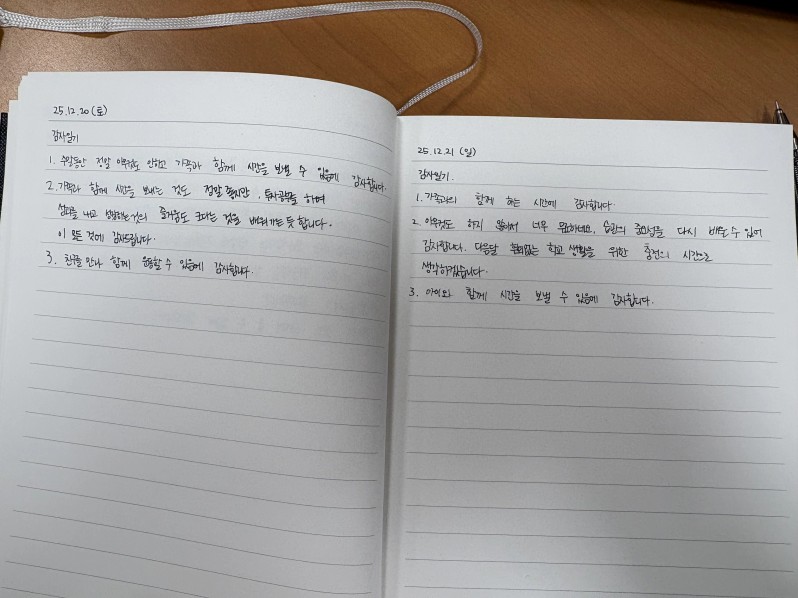 25.12.20 (토)
감사일기
1. 주말동안 정말 아무것도 안하고 가족과 함께 시간을 보낼 수 있음에 감사합니다.
2. 가족과 함께 시간을 보내는 것도 정말 좋지만, 투자공부를 하며
성과를 내고 성장하는것의 즐거움도 크다는 것을 배워가는 듯 합니다.
이 모든 것에 감사드립니다.
3. 친구를 만나 함께 운동할 수 있음에 감사합니다.
25.12.21 (일)
감사일기.
1. 가족과의 함께 하는 시간에 감사합니다.
2. 아무것도 하지 않아서 너무 습관의 중요성을 다시 배울 수 있어
감사합니다. 다음달 학교 생활을 위한 충전의 시간으로
생각하겠습니다.
3. 아이와 함께 시간을 보낼 수 있음에 감사합니다.